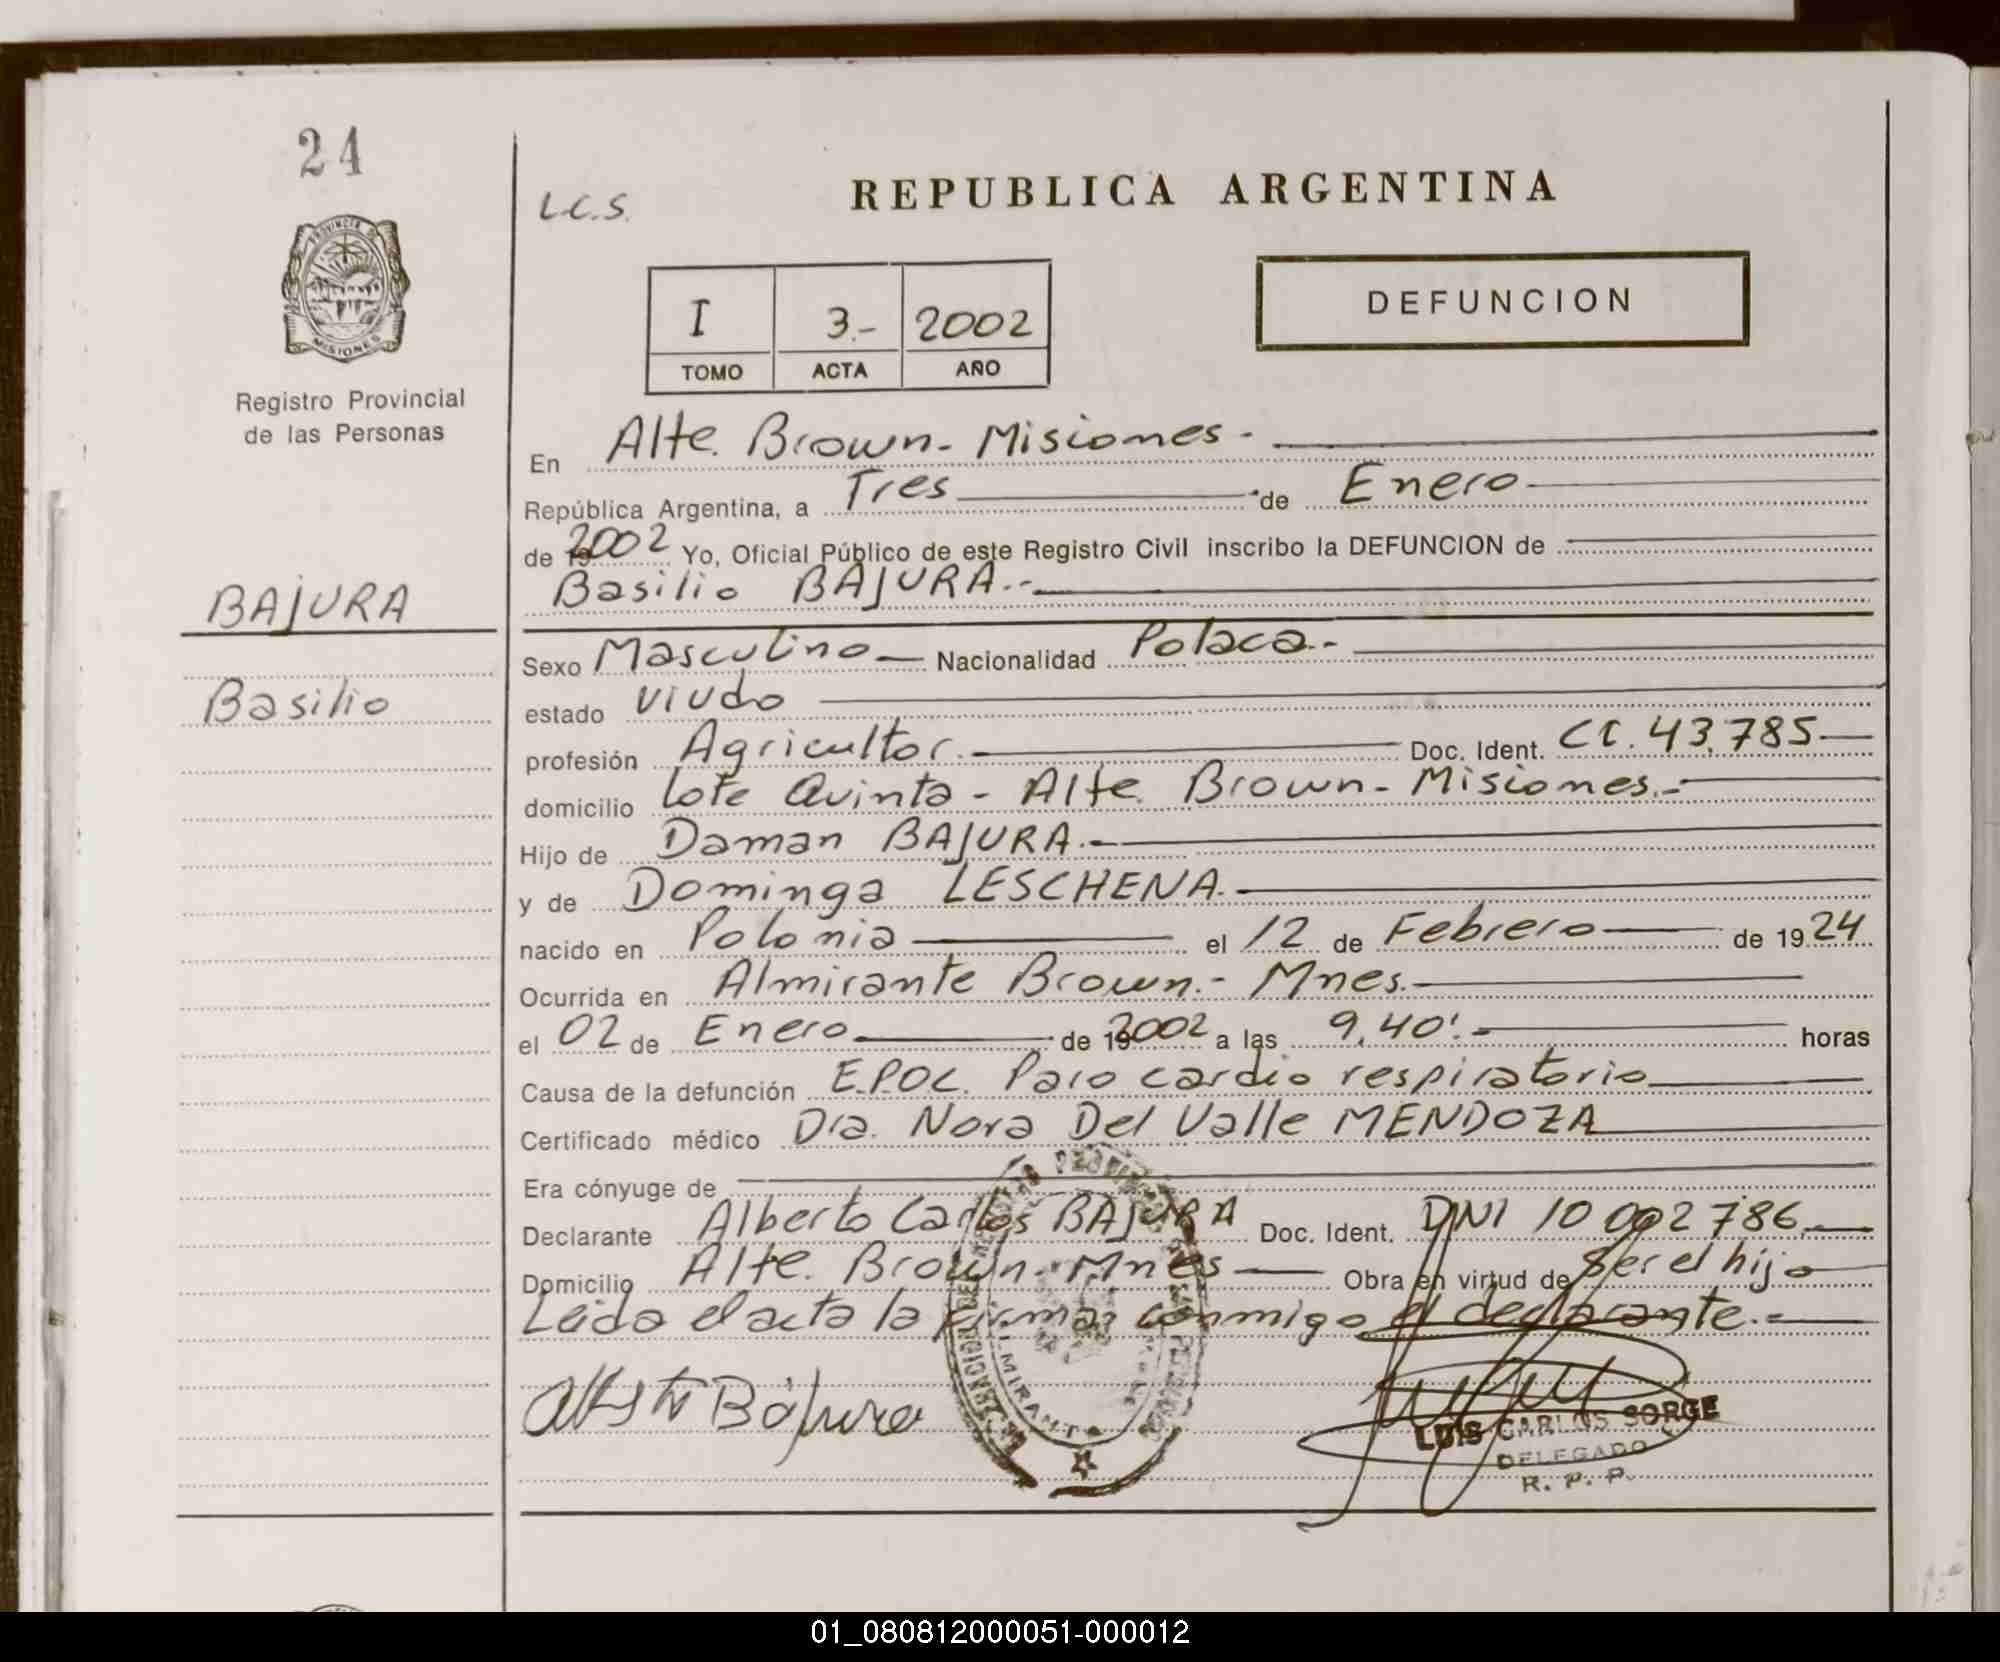 24
PROVINCIA DE
MISIONES
Registro Provincial
de las Personas
BAJURA
Basilio
L.C.S.
REPUBLICA ARGENTINA
I 3.- 2002
TOMO ACTA AÑO
DEFUNCION
En Alte. Brown - Misiones -
República Argentina, a Tres de Enero
de 2002 Yo, Oficial Público de este Registro Civil inscribo la DEFUNCION de
Basilio BAJURA.-
Sexo Masculino Nacionalidad Polaca.-
estado viudo
profesión Agricultor. Doc. Ident. CI. 43.785
domicilio Lote Quinta - Alte Brown - Misiones.-
Hijo de Daman BAJURA.-
y de Dominga LESCHENA.
nacido en Polonia el 12 de Febrero de 1924
Ocurrida en Almirante Brown.- Mnes.
el 02 de Enero de 192002 a las 9,40'.- horas
Causa de la defunción E.P.O.C. Paro cardio respiratorio
Certificado médico Dra. Nora Del Valle MENDOZA
Era cónyuge de
Declarante Alberto Carlos BAJURA Doc. Ident. DNI 10 002 786.
Domicilio Alte. Brown - Mnes Obra en virtud de Ser el hijo
Leida el acta la firma conmigo el declarante.-
Bajura
LUIS CARLOS SORGE
DELEGADO
R. P. P.
01_080812000051-000012